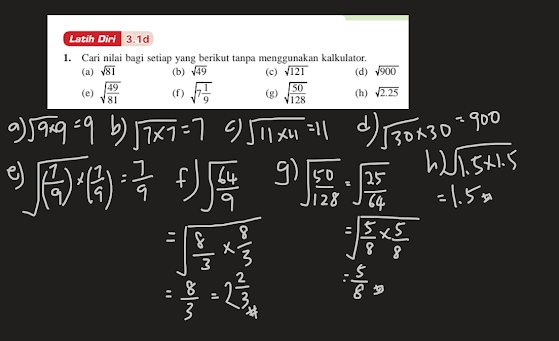 Latih Diri 3.1d
1. Cari nilai bagi setiap yang berikut tanpa menggunakan kalkulator.
(a) √81 (b) √49 (c) √121 (d) √900
(e) √(49/81) (f) √(7 1/9) (g) √(50/128) (h) √2.25
a) √(9×9) = 9 b) √(7×7) = 7 c) √(11×11) = 11 d) √(30×30) = 900
e) √((7/9)×(7/9)) = 7/9 f) √(64/9) g) √(50/128) = √(25/64) h) √(1.5×1.5)
= 1.5
= √(8/3 × 8/3) = √(5/8 × 5/8)
= 8/3 = 2 2/3 = 5/8